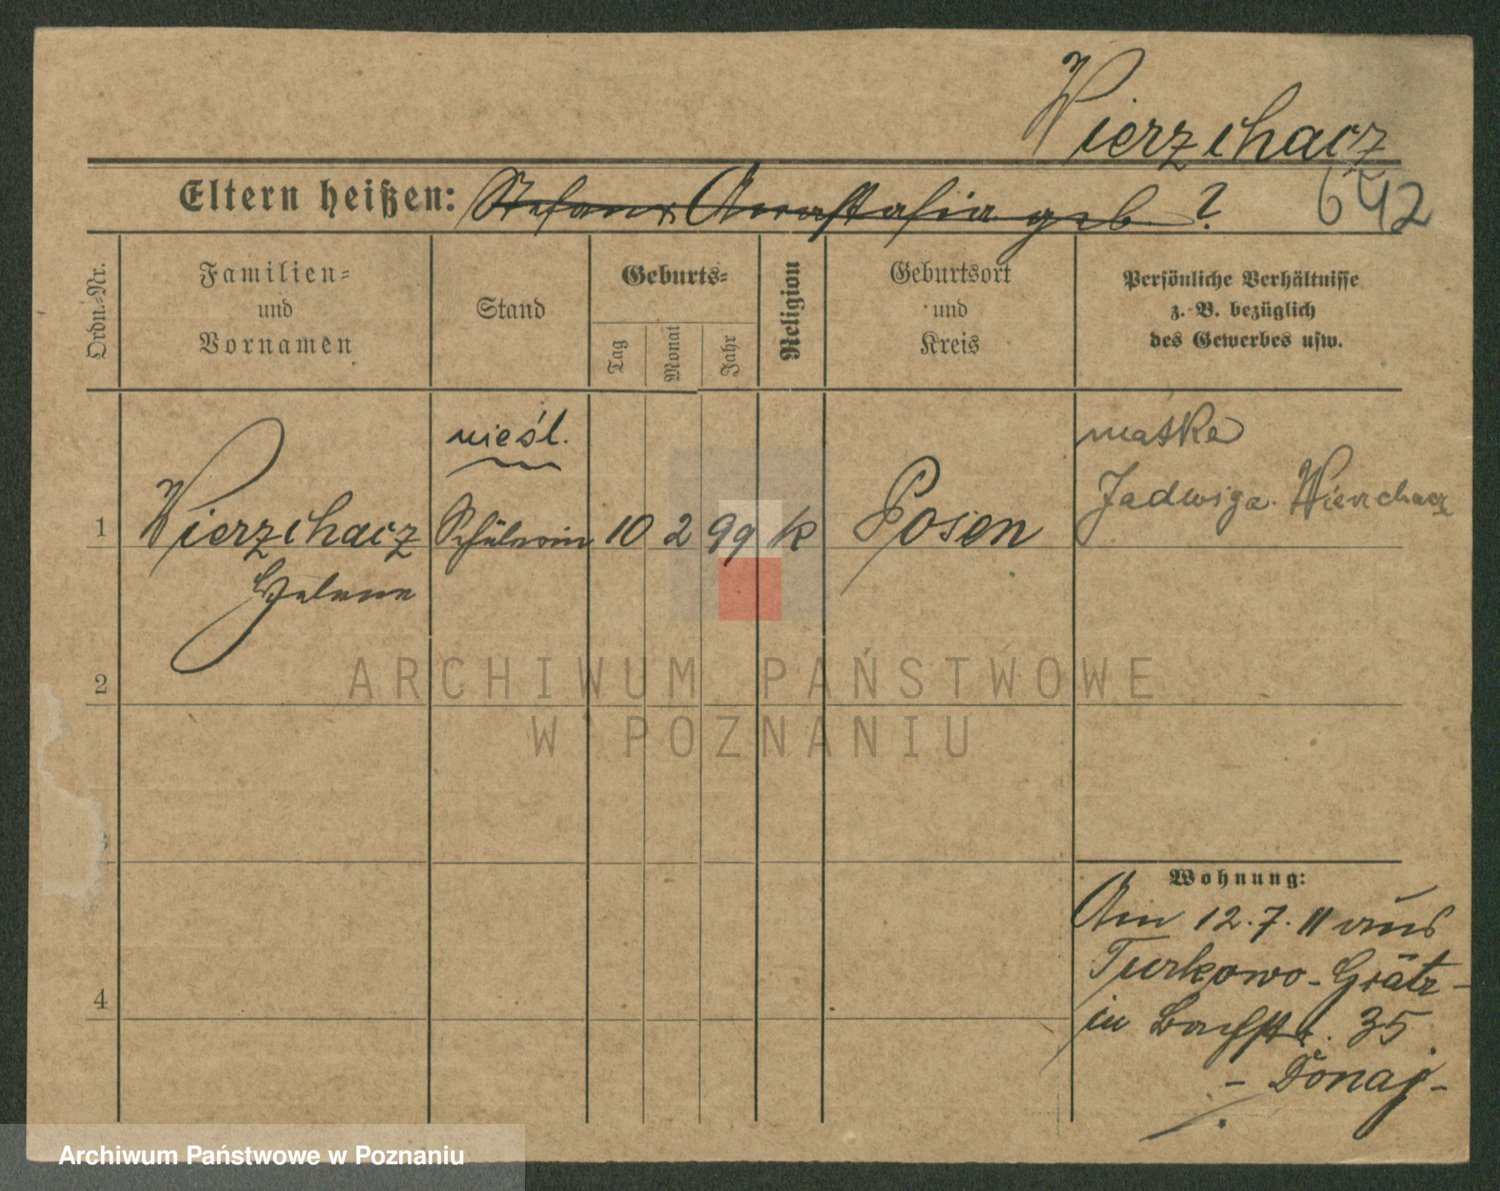 Wierzchacz
Eltern heißen: Stefan u Anastasia geb ?
642
Ordn.-Nr.
Familien-
und
Vornamen
Stand
Geburts-
Tag
Monat
Jahr
Religion
Geburtsort
und
Kreis
Persönliche Verhältnisse
z. B. bezüglich
des Gewerbes usw.
nieśl.
1
Wierzchacz
Helene
Schülerin
10
2
99
k
Posen
matka
Jadwiga Wierzchacz
2
4
Wohnung:
Am 12.7.11 aus
Turkowo-Grätz-
in Bachstr. 35.
- Donaj -
ARCHIWUM PAŃSTWOWE
W POZNANIU
Archiwum Państwowe w Poznaniu